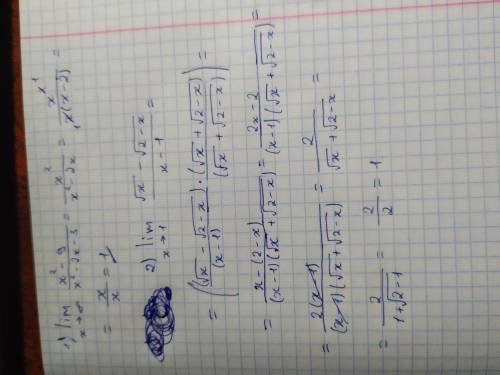 1) lim x→∞ (x² - 9)/(x² - 2x - 3) = x²/(x² - 2x) = x^x¹/(x(x-2)) =
= x/x = 1
2) lim x→1 (√x - √2-x)/(x - 1) =
= ((√x - √2-x)/(x-1)) · ((√x + √2-x)/(√x + √2-x)) =
= (x - (2-x))/((x-1)(√x + √2-x)) = (2x - 2)/((x-1)(√x + √2-x)) =
= 2(x-1)/((x-1)(√x + √2-x)) = 2/(√x + √2-x) =
= 2/(1+√2-1) = 2/2 = 1